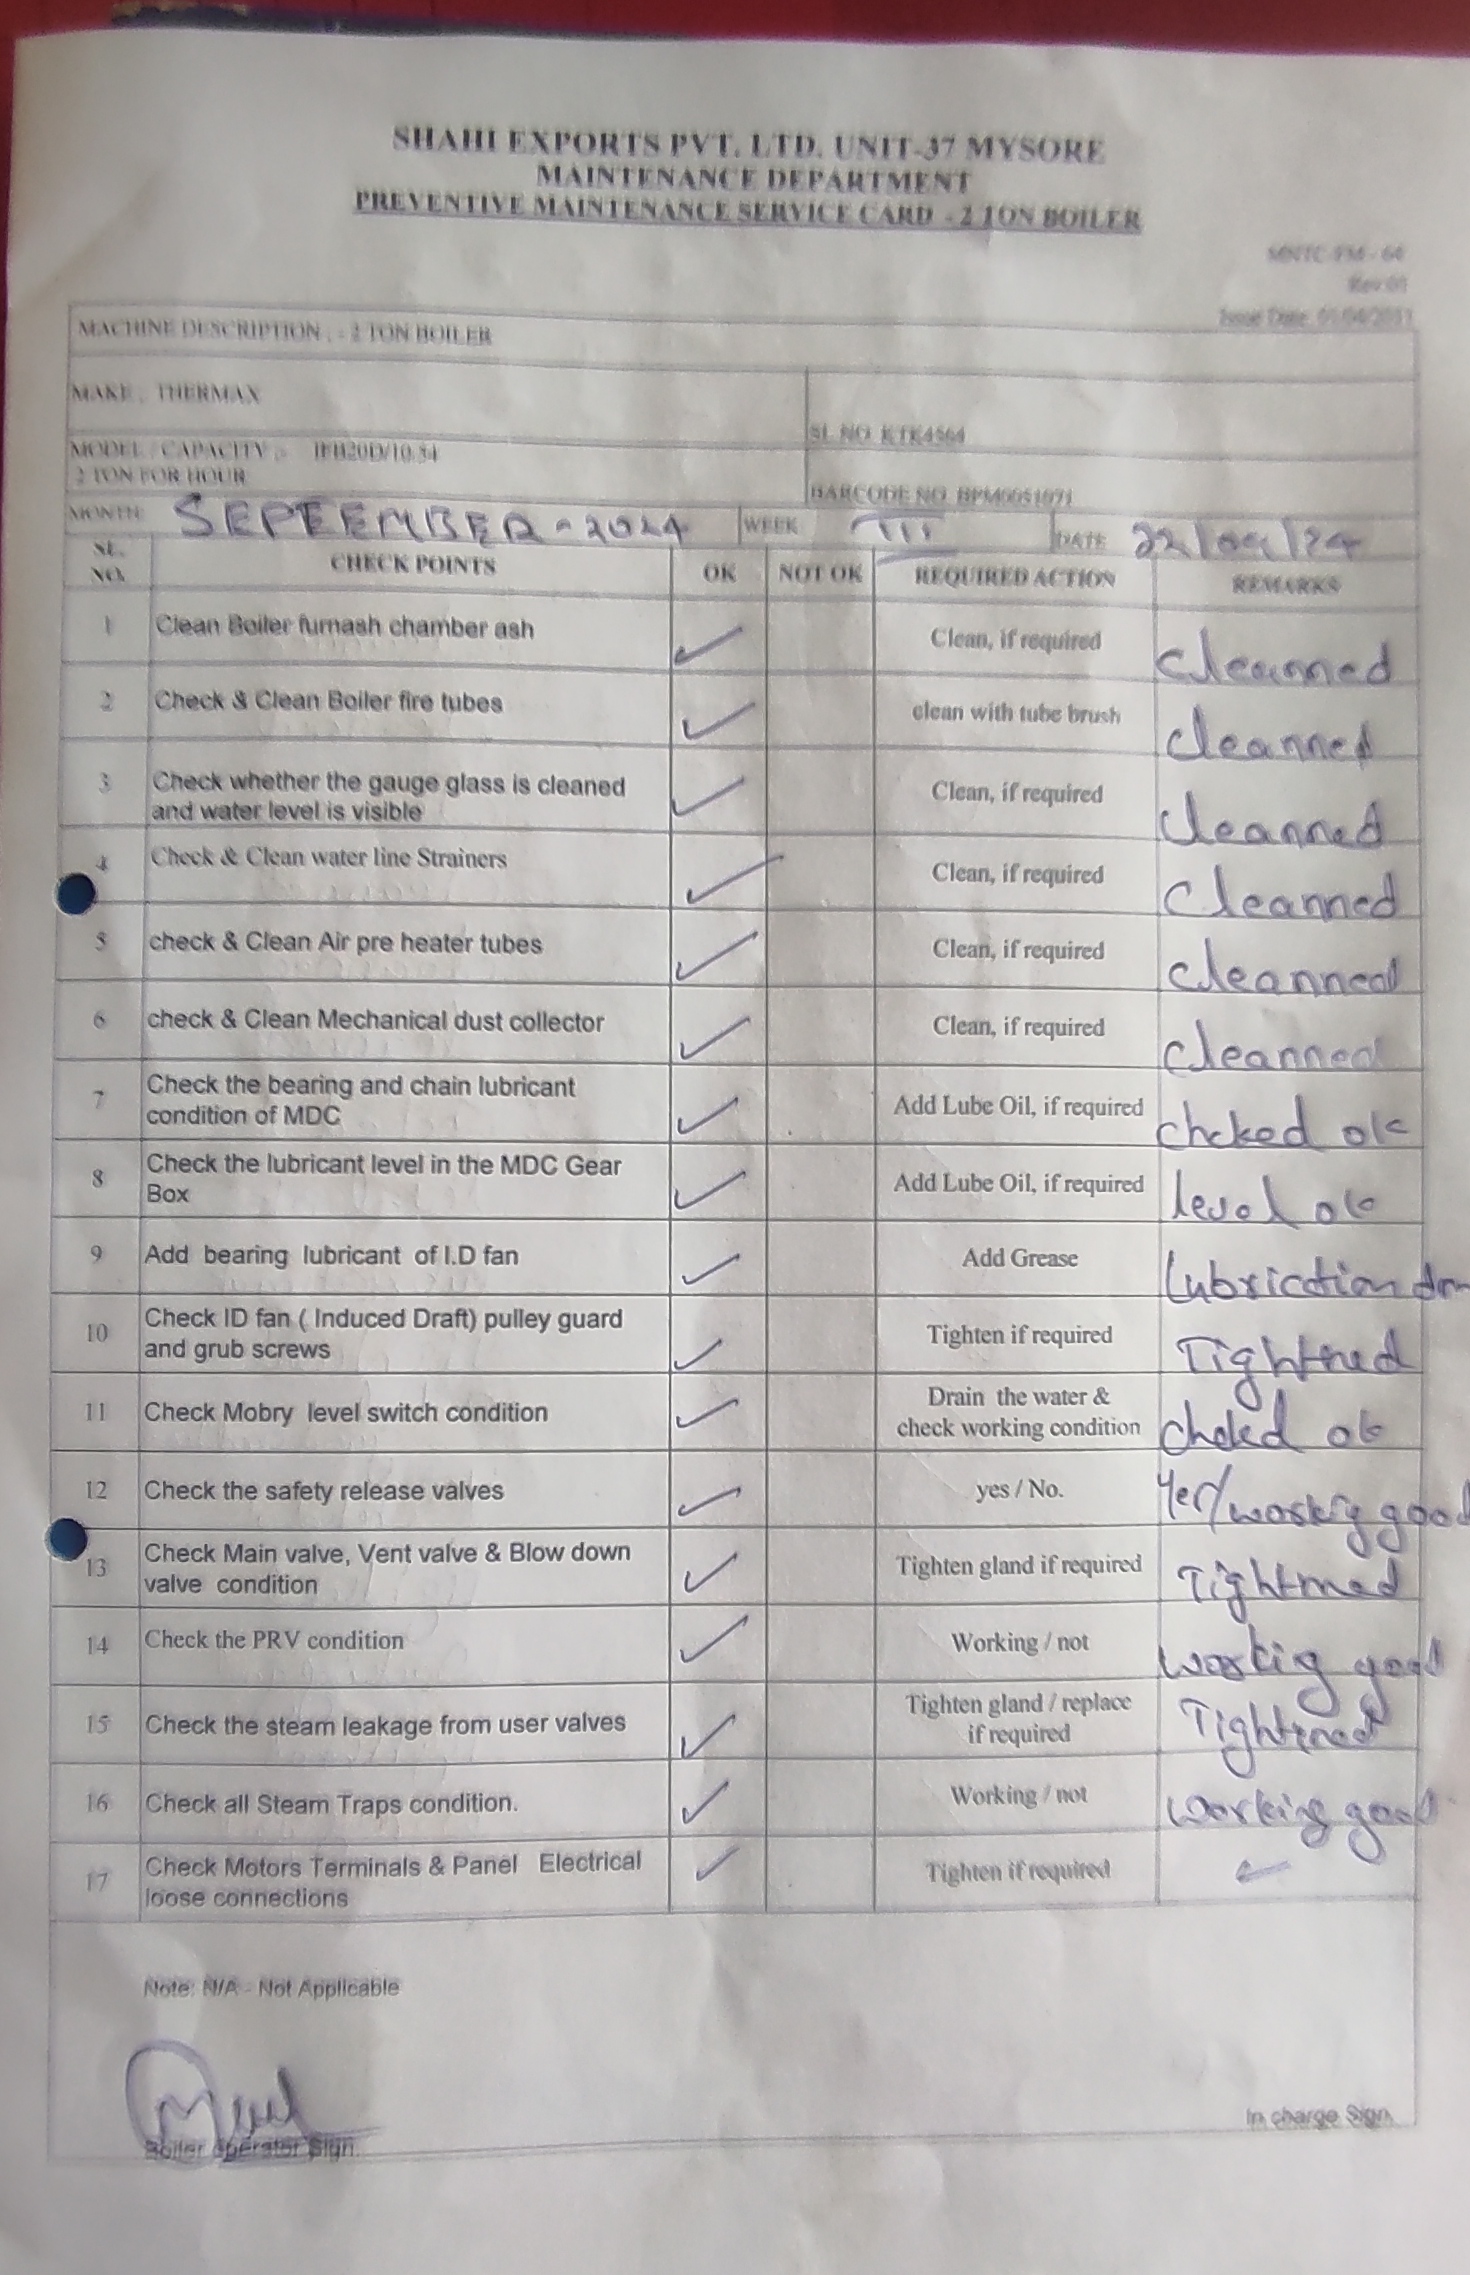 SHAHI EXPORTS PVT. LTD. UNIT-37 MYSORE
MAINTENANCE DEPARTMENT
PREVENTIVE MAINTENANCE SERVICE CARD - 2 TON BOILER
MNTC-FM - 64
Rev:01
Issue Date: 01/04/2011
MACHINE DESCRIPTION : - 2 TON BOILER
MAKE : THERMAX
SL NO KTK4564
MODEL / CAPACITY :-
2 TON FOR HOUR
BARCODE NO. BPM0051071
MONTH: SEPEEMBER - 2024 WEEK III DATE 22/09/24
SL. NO. CHECK POINTS OK NOT OK REQUIRED ACTION REMARKS
1 Clean Boiler furnash chamber ash ✓ Clean, if required Cleanned
2 Check & Clean Boiler fire tubes ✓ clean with tube brush cleanned
3 Check whether the gauge glass is cleaned and water level is visible ✓ Clean, if required cleanned
4 Check & Clean water line Strainers ✓ Clean, if required Cleanned
5 check & Clean Air pre heater tubes ✓ Clean, if required cleanned
6 check & Clean Mechanical dust collector ✓ Clean, if required cleanned
7 Check the bearing and chain lubricant condition of MDC ✓ Add Lube Oil, if required chcked ok
8 Check the lubricant level in the MDC Gear Box ✓ Add Lube Oil, if required level ok
9 Add bearing lubricant of I.D fan ✓ Add Grease Lubriction
10 Check ID fan ( Induced Draft) pulley guard and grub screws ✓ Tighten if required Tightned
11 Check Mobry level switch condition ✓ Drain the water & check working condition ok
12 Check the safety release valves ✓ yes / No. Yes/workig good
13 Check Main valve, Vent valve & Blow down valve condition ✓ Tighten gland if required Tightned
14 Check the PRV condition ✓ Working / not workig good
15 Check the steam leakage from user valves ✓ Tighten gland / replace if required Tightned
16 Check all Steam Traps condition. ✓ Working / not working good
17 Check Motors Terminals & Panel Electrical loose connections ✓ Tighten if required ✓
Note: N/A - Not Applicable
Boiler operator Sign.
In charge Sign.